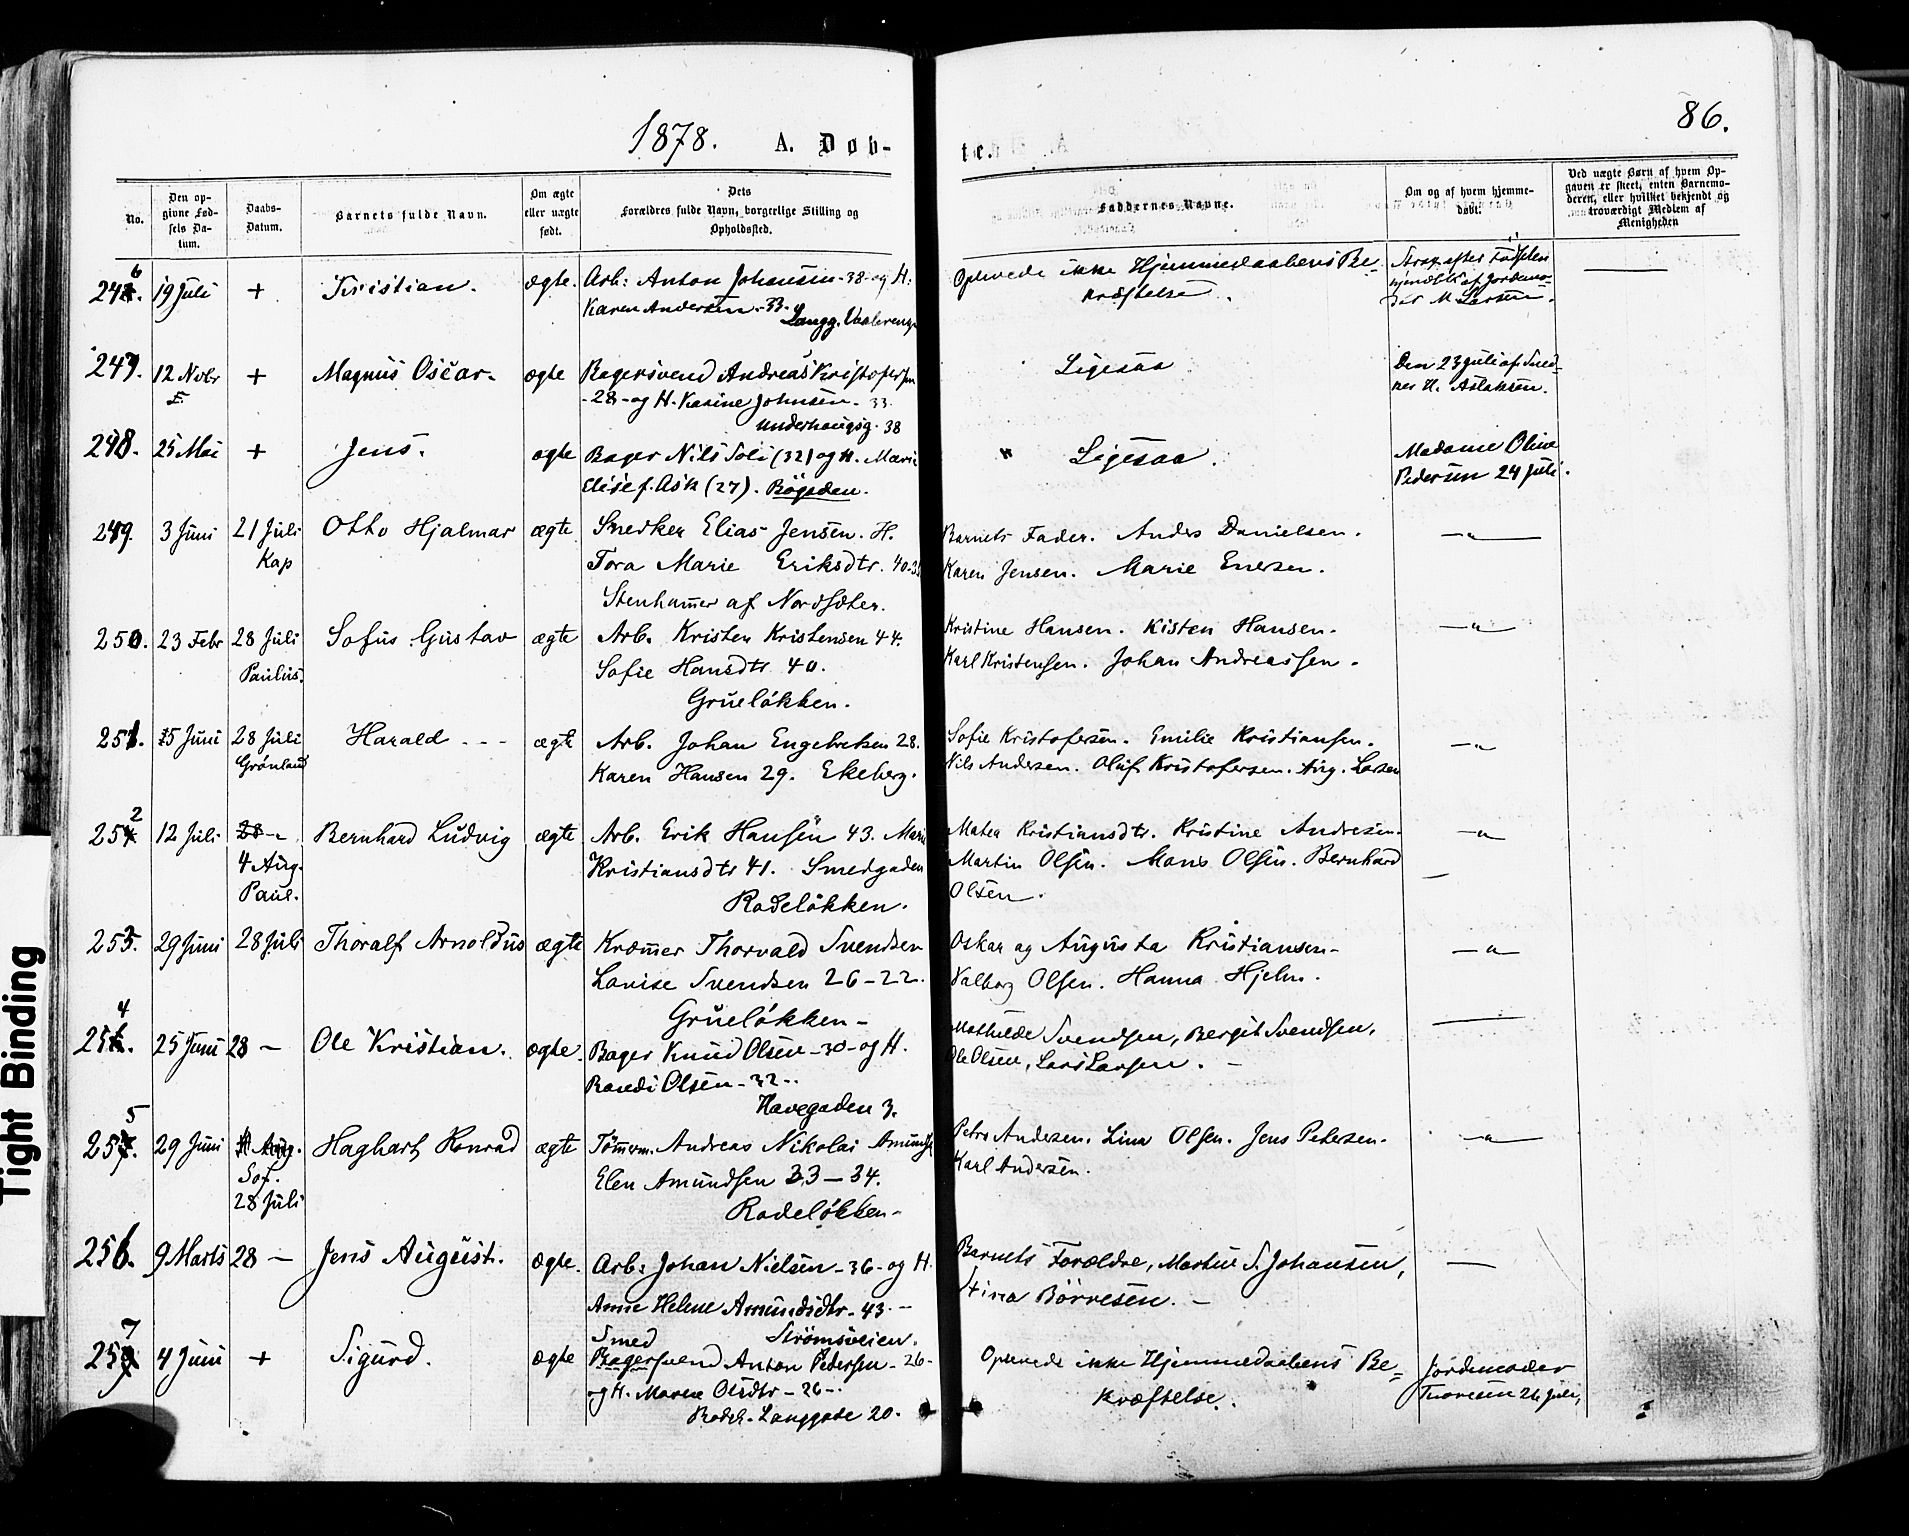 1878. A. Døb-
No.
Den op-
givne Fød-
sels Da-
tum.
Daabs-
Datum.
Barnets fulde Navn.
Om ægte
eller uægte
født.
Dets
Forældres fulde Navn, borgerlige Stilling og
Opholdssted.
246. 19 Juli + Kristian. ægte. Arb: Anton Johansen - 38 - og H:
Karen Andersen - 33.
Langg. Vaalereng
247. 12 Nobr + Magnus Oscar. ægte Bagersvend Andreas Kristofersen
- 28 - og H. Karine Johnsen - 33.
Underhaugsg. 38
248. 25 Mai + Jens. ægte Bager Nils Soli (32) og H. Marie
Elisef. Ask (27). Bögaden.
249. 3 Juni 21 Juli Otto Hjalmar ægte Snedker Elias Jensen. H.
Kap Tora Marie Eriksdtr. 40.
Stenhamer af Nordsæter.
250. 23 Febr 28 Juli Sofus Gustav ægte Arb. Kristen Kristensen 44.
Paulus. Sofie Hansdtr 40.
Grueløkken.
251. 15 Juni 28 Juli Harald ægte Arb. Johan Engebretsen 28.
Grønland Karen Hansen 29. Ekeberg.
252 12 Juli 28 - Bernhard Ludvig ægte Arb. Erik Hansen 43. Marie
4 Aug. Kristiansdtr 41. Smedgaden
Paul. Rodeløkken.
253. 29 Juni 28 Juli Thoralf Arnoldus ægte Kræmer Thorvald Svendsen
Lovise Svendsen 26 - 22.
Grueløkken -
254. 25 Juni 28 - Ole Kristian. ægte. Bager Knud Olsen - 30 - og H.
Randi Olsen - 32 -.
Havegaden 3.
255. 29 Juni Aug. Haghart Konrad ægte Tømerm. Andreas Nikolai Amundse
Sof. Elen Amundsen 33 - 34.
28 Juli Rodeløkken -
256. 9 Marts 28 - Jens August. ægte. Arb: Johan Nielsen - 36 - og H.
Anne Helene Amundsdtr - 43. -
Strømsveien.
257 4 Juni + Sigurd. ægte Smed
Bagersvend Anton Pedersen - 26 -
og H. Maren Olsdtr - 26 -.
Rodel. Langgade 20.
86.
te.
Faddernes Navne.
Om og af hvem hjemme-
døbt.
Ved uægte Børn af hvem Op-
gaven er skeet, enten Barnemo-
deren, eller hvilket bekjendt og
troværdigt Medlem af
Menigheden
Oplevede ikke Hjemmedaabens Be-
kræftelse.
Strax efter Fødselen
hjmdbt. af Jordemo-
der M. Larsen.
Ligesaa
Den 23 Juli af Sned-
ker H. Aslaksen.
Ligesaa.
Madame Oline
Pedersen 24 Juli.
Barnets Fader. Anders Danielsen.
Karen Jensen. Marie Enersen.
Kristine Hansen. Kisten Hansen.
Karl Kristensen. Johan Andreassen.
Sofie Kristofersen. Emilie Kristiansen.
Nils Andersen. Oluf Kristofersen. Aug. Larsen
Matea Kristiansdtr. Kristine Andresen.
Martin Olsen. Mons Olsen. Bernhard
Olsen.
Oskar og Augusta Kristiansen -
Valborg Olsen. Hanna Hjelm.
Mathilde Svendsen, Bergit Svendsen,
Ole Olsen, Lars Larsen. -
Petra Andersen. Lina Olsen. Jens Petersen.
Karl Andersen.
Barnets Forældre, Martin S. Johansen,
Stina Börresen. -
Oplevede ikke Hjemmedaabens Be-
kræftelse.
Jordemoder
Thoresen 26 Juli,
Tight Binding